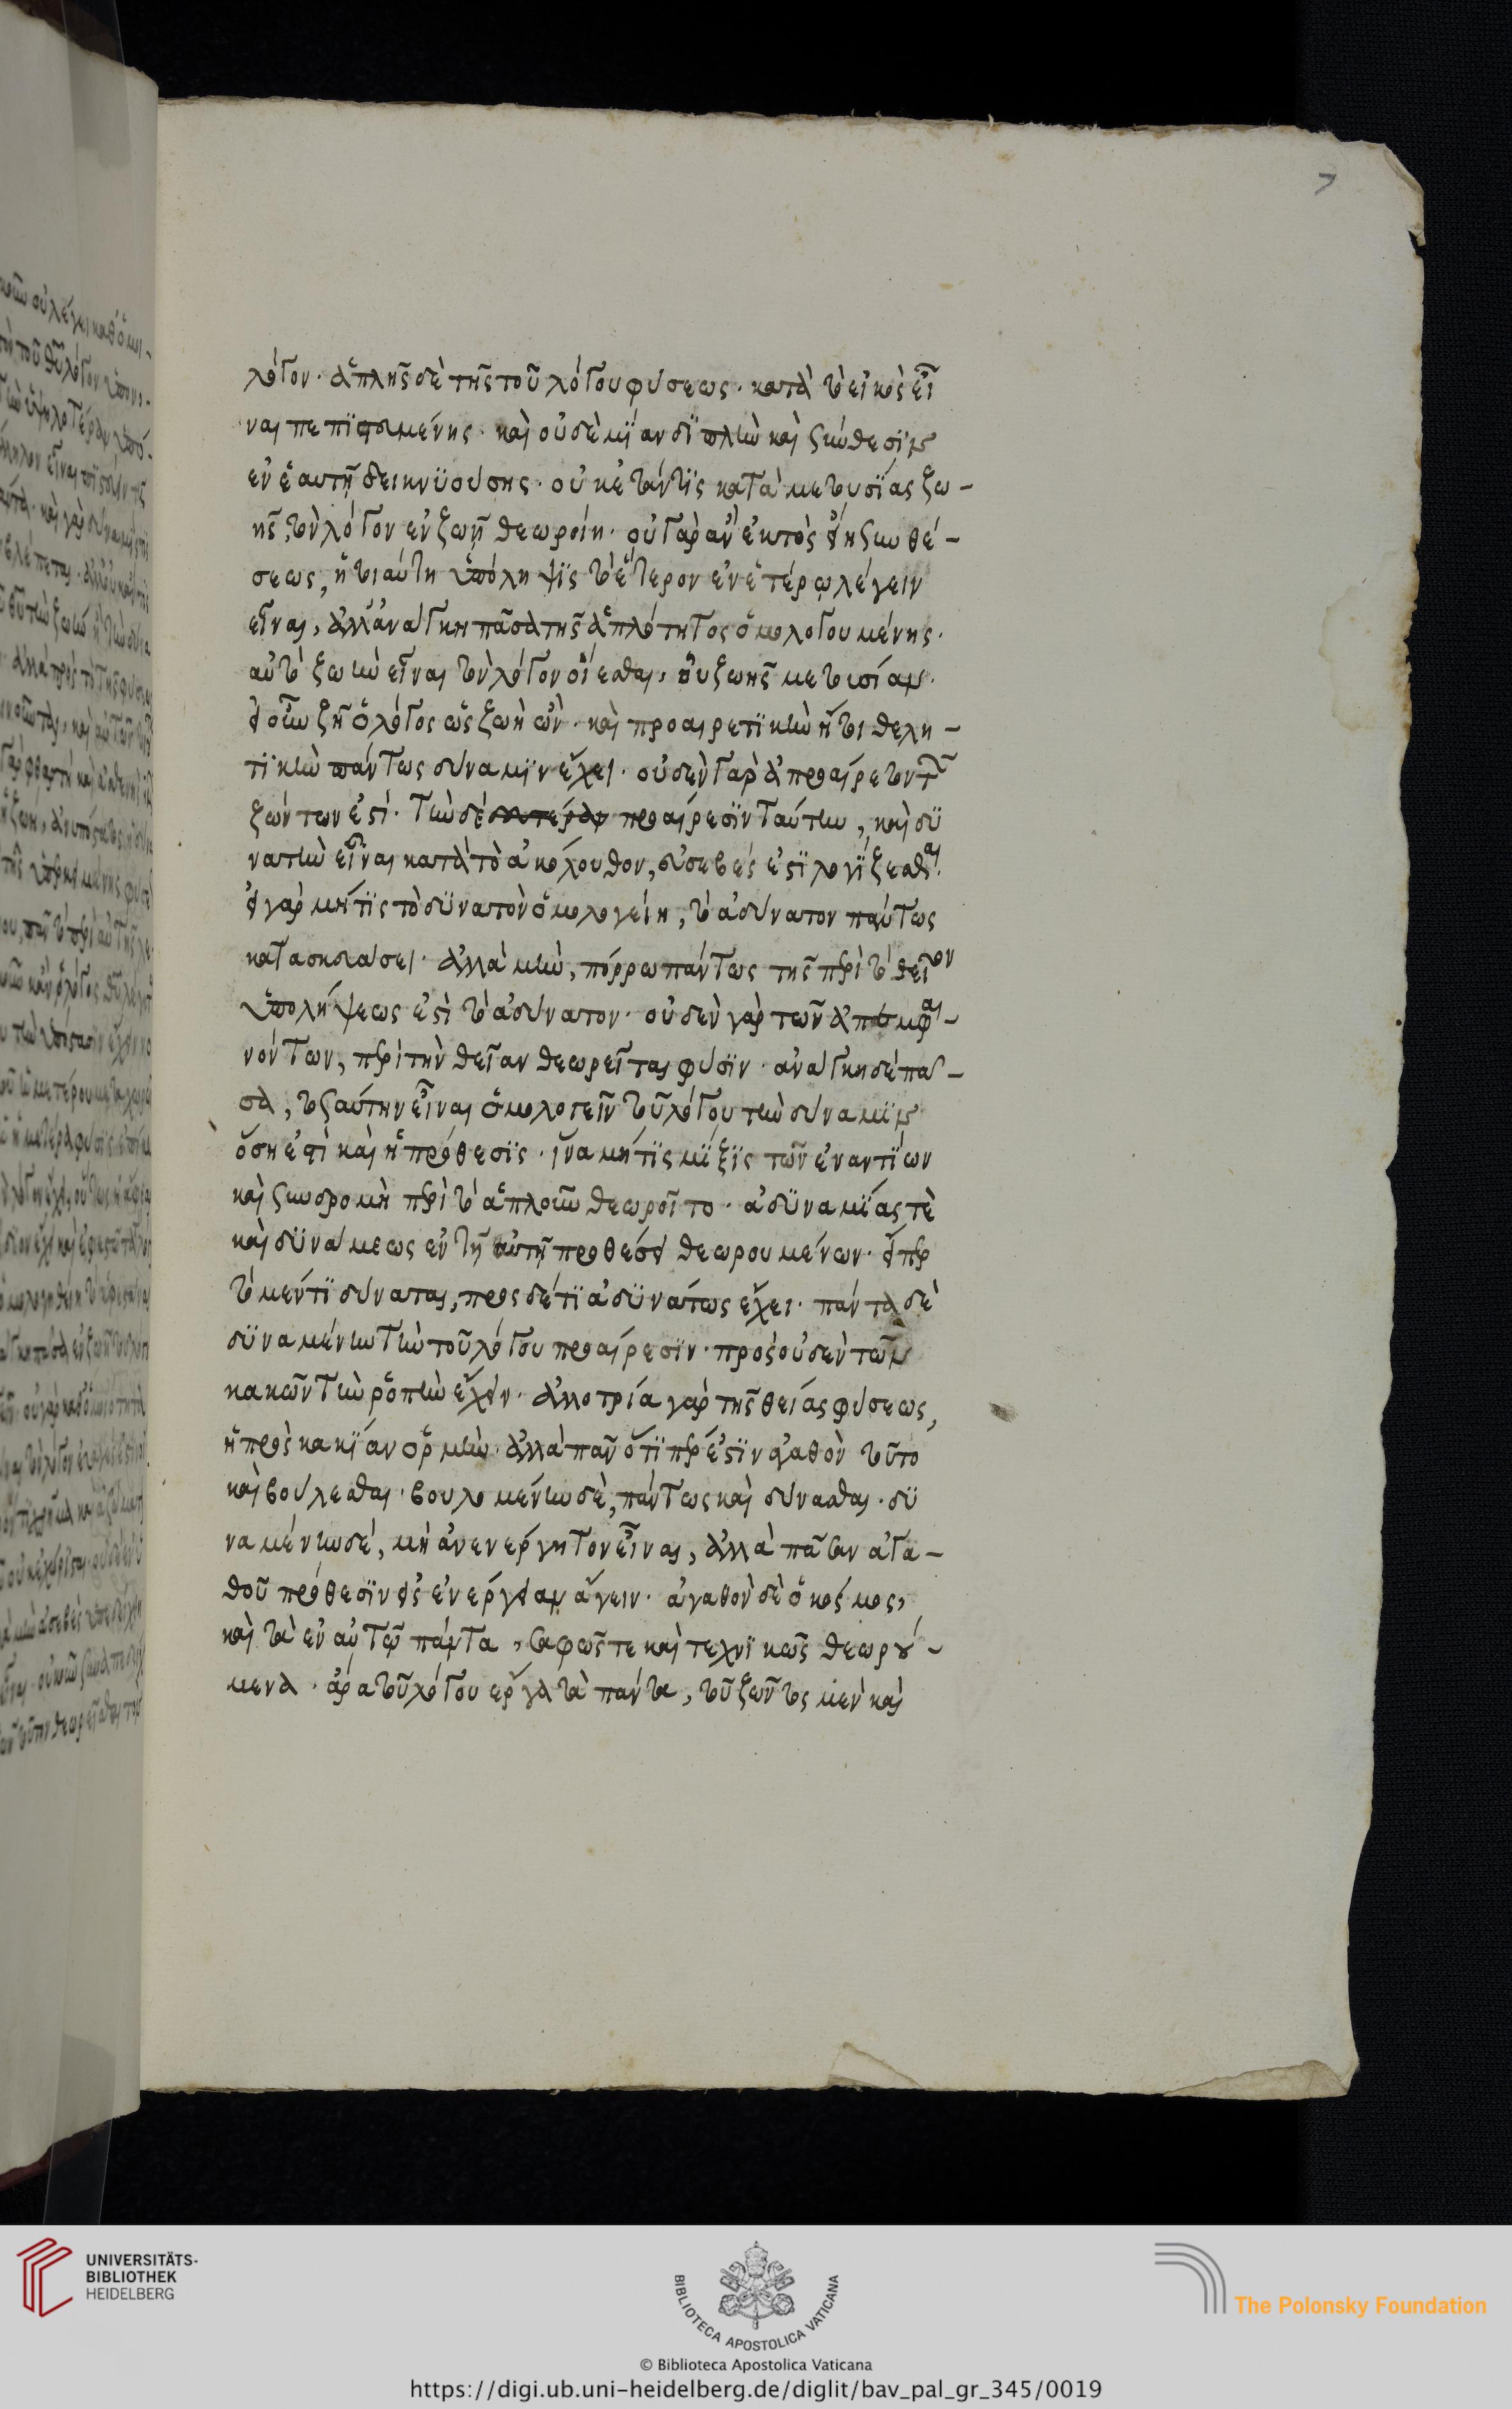 7
λόγον· ἁπλῆς δὲ τῆς τοῦ λόγου φύσεως· κατὰ τὸ εἰκὸς εἶ
ναι πεπιστευμένης· καὶ οὐδὲ μίαν διπλὴν καὶ συνθεσιν
ἐν ἑαυτῇ δεικνυούσης· οὐκέτ' ἄν τις κατὰ μετουσίας ζω-
ῆς, τὸν λόγον ἐν ζωῇ θεωροίη· οὐ γὰρ ἂν ἐκτὸς εἴη συνθέ-
σεως, ἡ τοιαύτη ὑπόληψις τὸ ἕτερον ἐν ἑτέρῳ λέγειν
εἶναι, ἀλλ' ἀνάγκη πᾶσα τῆς ἁπλότητος ὁμολογουμένης·
αὐτὸ ζωὴν εἶναι τὸν λόγον οἴεσθαι, οὐ ζωῆς μετουσίαν·
εἰ οὖν ζῇ ὁ λόγος ὡς ζωὴ ὢν· καὶ προαιρετικὴν ἤτοι θελη-
τικὴν πάντως δύναμιν ἔχει· οὐδὲν γὰρ ἀπροαίρετον τῶν
ζώντων ἐστί· τὴν δὲ προαίρεσιν ταύτην, καὶ δυ
νατὴν εἶναι κατὰ τὸ ἀκόλουθον, εὐσεβές ἐστι λογίζεσθαι·
εἰ γὰρ μή τις τὸ δυνατὸν ὁμολογείη, τὸ ἀδύνατον πάντως
κατασκευάσει· ἀλλὰ μὴν, πόρρω πάντως τῆς περὶ τὸ θεῖον
ὑπολήψεως ἐστὶ τὸ ἀδύνατον· οὐδὲν γὰρ τῶν ἀπεμφαι-
νόντων, περὶ τὴν θείαν θεωρεῖται φύσιν· ἀνάγκη δὲ πᾶ-
σα, τοσαύτην εἶναι ὁμολογεῖν τοῦ λόγου τὴν δύναμιν
ὅση ἐστὶ καὶ ἡ πρόθεσις· ἵνα μή τις μίξις τῶν ἐναντίων
καὶ συνδρομὴ περὶ τὸ ἁπλοῦν θεωροῖτο· ἀδυναμίας τὲ
καὶ δυνάμεως ἐν τῇ αὐτῇ προθέσει θεωρουμένων· εἴπερ
τὸ μέν τι δύναται, πρὸς δέ τι ἀδυνάτως ἔχει· πάντα δὲ
δυναμένην τὴν τοῦ λόγου προαίρεσιν· πρὸς οὐδὲν τῶν
κακῶν τὴν ῥοπὴν ἔχειν· ἀλλοτρία γὰρ τῆς θείας φύσεως,
ἡ πρὸς κακίαν ὁρμὴ· ἀλλὰ πᾶν ὅτι πέρ ἐστιν ἀγαθὸν τοῦτο
καὶ βούλεσθαι· βουλομένην δὲ, πάντως καὶ δύνασθαι· δυ
ναμένην δέ, μὴ ἀνενέργητον εἶναι, ἀλλὰ πᾶσαν ἀγα-
θοῦ πρόθεσιν εἰς ἐνέργειαν ἄγειν· ἀγαθὸν δὲ ὁ κόσμος,
καὶ τὰ ἐν αὐτῷ πάντα, σαφῶς τε καὶ τεχνικῶς θεωρού-
μενα· ἄρα τοῦ λόγου ἔργα τὰ πάντα, τοῦ ζῶντος μὲν καὶ
UNIVERSITÄTS-
BIBLIOTHEK
HEIDELBERG
BIBLIOTECA APOSTOLICA VATICANA
The Polonsky Foundation
© Biblioteca Apostolica Vaticana
https://digi.ub.uni-heidelberg.de/diglit/bav_pal_gr_345/0019